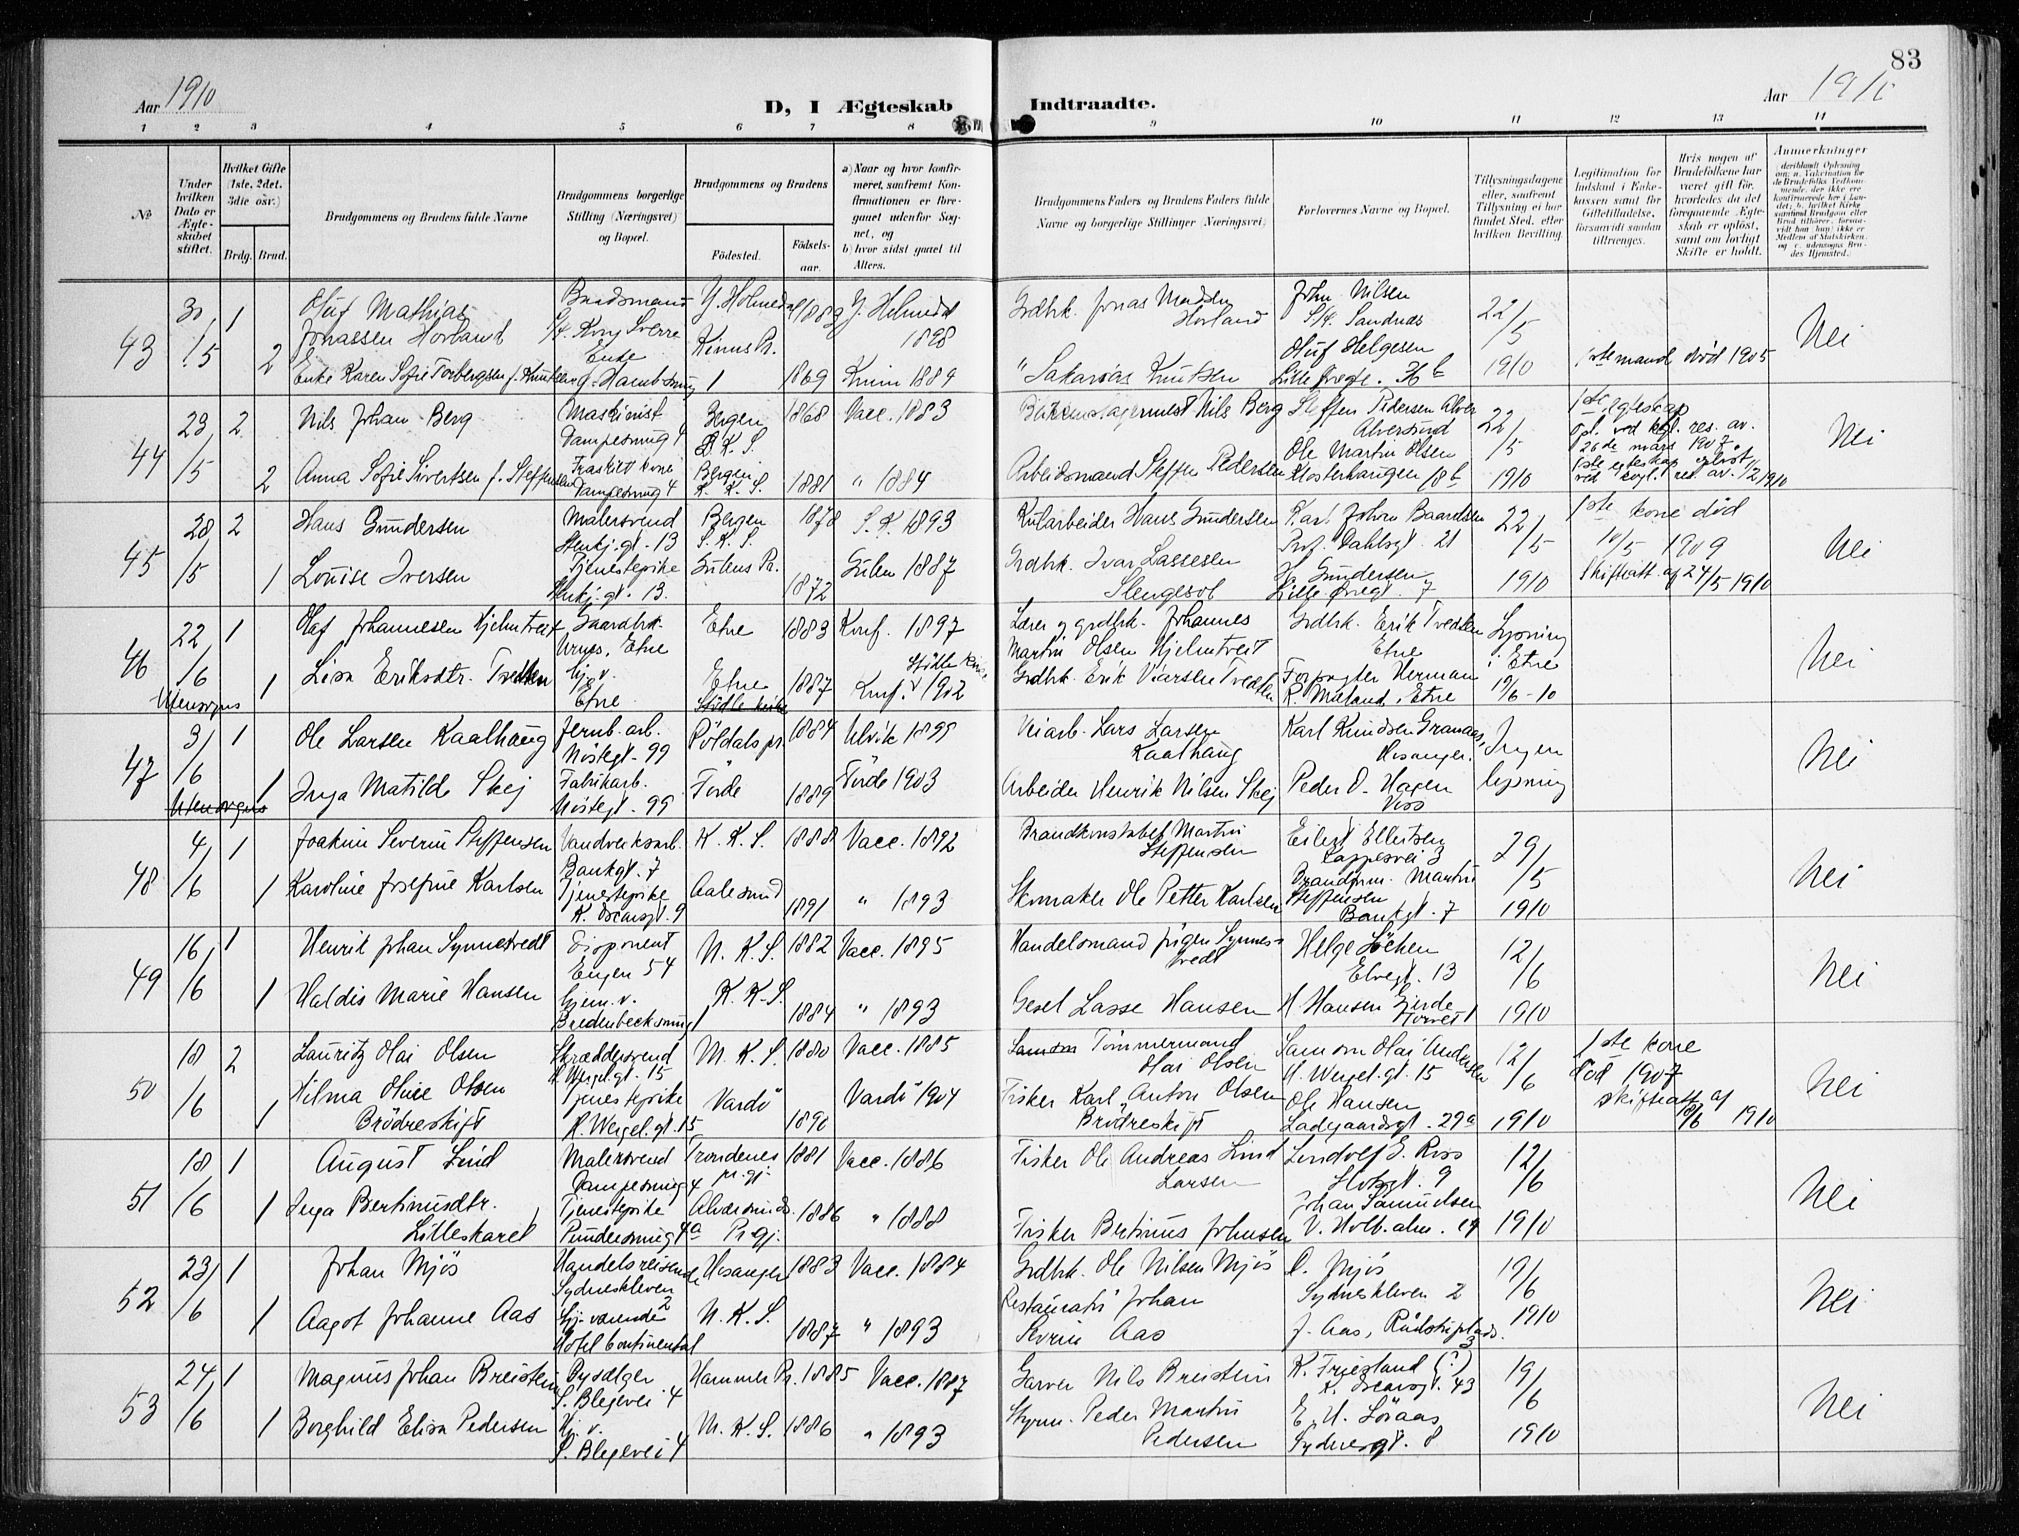 83
Aar 1910
D, I Ægteskab Indtraadte.
Aar 1910
1 2 3 4 5 6 7 8 9 10 11 12 13 14
№
Under hvilken Dato er Ægteskabet stiftet.
Hvilket Gifte (1ste, 2det, 3die osv.)
Brdg. Brud.
Brudgommens og Brudens fulde Navne
Brudgommens borgerlige Stilling (Næringsvei) og Bopæl.
Brudgommens og Brudens
Födested.
Födselsaar.
a) Naar og hvor konfirmeret, saafremt Konfirmationen er foregaaet udenfor Sognet, og
b) hvor sidst gaaet til Alters.
Brudgommens Faders og Brudens Faders fulde Navne og borgerlige Stillinger (Næringsvei)
Forlovernes Navne og Bopæl.
Tillysningsdagene eller, saafremt Tillysning ei har fundet Sted, efter hvilken Bevilling.
Legitimation for Indskud i Enkekassen samt for Giftetilladelse, forsaavidt saadan tiltrænges.
Hvis nogen af Brudefolkene har været gift för, hvorledes da det foregaaende Ægteskab er oplöst, samt om lovligt Skifte er holdt.
Anmerkninger
43 30/5 1 Oluf Mathias Jonassen Horland Baadsmand S/s. Kong Sverre Y. Holmedal 1883 Y. Holmedal 1898 Grdbrk. Jonas Madsen Horland John Nilsen S/s. Sandnæs 22/5 1910 Nei
2 Enke Karen Sofie Torbergsen f. Knutsen Enke Kinns Pr. 1869 Kinn 1889 " Sakarias Knutsen Oluf Helgesen Lille Øvregt. 36 b 1ste mand död 1905
44 23/5 2 Nils Johan Berg Maskinist Dampesmug 4 Bergen D. K. S. 1868 Vacc. 1883 Nils Berg Steffen Pedersen Alver Alversund 22/5 1910 1ste egteskap opl. ved kgl. res. av 26de mars 1907. Nei
2 Anna Sofie Sivertsen f. Steffensen Fraskilt kone Dampesmug 4 Bergen K. K. S. 1881 " 1884 Arbeidsmand Steffen Pedersen Ole Martin Olsen Klosterhaugen 18 b 1ste egteskap oplöst ved kgl. res. av
45 28/5 2 Hans Gundersen Malersvend Bergen S. K. S. 1878 S. K. 1893 Kularbeider Hans Gundersen Karl Johan Baardsen Prof. Dahlsgt. 21 22/5 1910 1ste kone död 10/5 1909 Skifteatt. af 24/5 1910 Nei
1 Louise Iversen Tjenestepike Gulens Pr. 1872 Gulen 1887 Grdbrk. Ivar Lassesen H. Gundersen Lille Øvregt. 7
46 22/6 1 Olaf Johannesen Hjelmtveit Gaardbr. Etne 1883 Konf. 1897 Lærer og grdbrk. Johannes Martin Olsen Hjelmtveit Grdbrk. Erik Tvedten Etne Lysning i Etne 19/6-10 Nei
Utensogns 1 Lisa Eriksdtr. Tvedten Hj. v. Etne Etne Stödle kirke 1887 Konf. 1902 Stödle kirke Grdbrk. Erik Tvedten Forpagter Herman K. Etne
47 3/6 1 Ole Larsen Kaalhaug Jernb. arb. Nöstegt. 99 Röldals pr. 1884 Ulvik 1899 Veiarb. Lars Larsen Kaalhaug Karl Knudsen Granaas, Hosanger. Ingen lysning Nei
Utensogns 1 Inga Matilde Skej Fabrikarb. Nöstegt. 99 Förde 1889 Förde 1903 Arbeider Henrik Nilsen Skej Peder O. Hagen Voss
48 4/6 1 Joakim Severin Steffensen Vandverksarb. Bankgt. 7 K. K. S. 1888 Vacc. 1892 Brandkonstabel Martin Steffensen Eilert Ellertsen 29/5 1910 Nei
1 Karoline Josefine Karlsen Tjenestepike K. Oscarsgt. 9 Aalesund 1891 " 1893 Skomaker Ole Petter Karlsen Martin Steffensen Bankgt. 7
49 16/6 1 Henrik Johan Synnestvedt Disponent Engen 54 N. K. S. 1882 Vacc. 1895 Handelsmand Jörgen Synnestvedt Helge Löchen Elvegt. 13 12/6 1910 Nei
1 Haldis Marie Hansen Hjem. v. Bredenbecksmug 1 K. K. S. 1884 " 1893 Gesel Lasse Hansen H. Hansen Gjerde Torvet 1
50 18/6 2 Lauritz Olai Olsen Skræddersvend H. Wergel. gt. 15 M. K. S. 1880 Vacc. 1885 Tömmermand Olai Olsen Samson Olai Andersen H. Wergel. gt. 15 12/6 1910 1ste kone död 1907 skifteatt. af 18/6 1910 Nei
1 Hilma Oline Olsen Brödreskift Tjenestepike H. Wergel. gt. 15 Vardö 1890 Vardö 1904 Fisker Karl Anton Olsen Brödreskift Ole Hansen Ladegaardsgt. 29a
51 18/6 1 August Lind Malersvend Dampesmug 4 Trondenes pr.gj. 1881 Vacc. 1886 Fisker Ole Andreas Lind Larsen Lindolf E. Ross 12/6 1910 Nei
1 Inga Bertinusdtr. Lilleskaret Tjenestepike Pundersmug 4a Alversunds Prgj. 1886 " 1888 Fisker Bertinus Johnsen Johan Samuelsen V. Holb. alm. 19
52 23/6 1 Johan Mjös Handelsreisende Sydneskleven 2 Hosanger 1883 Vacc. 1884 Grdbrk. Ole Nilsen Mjös O. Mjös Sydneskleven 2 19/6 1910 Nei
1 Aagot Johanne Aas Hj. værende Hotel Continental N. K. S. 1887 " 1893 Restauratör Johan Severin Aas J. Aas, Rådstuplads. 3
53 24/6 1 Magnus Johan Breistein S. Blegevei 4 Hammer Pr. 1885 Vacc. 1887 Garver Nils Breistein K. Friesland (?) K. Oscarsgt. 43 19/6 1910 Nei
1 Borghild Elisa Pedersen Hj. v. S. Blegevei 4 M. K. S. 1886 " 1893 Styrm. Peder Martin Pedersen E. U. Söraas Sydnesgt. 8